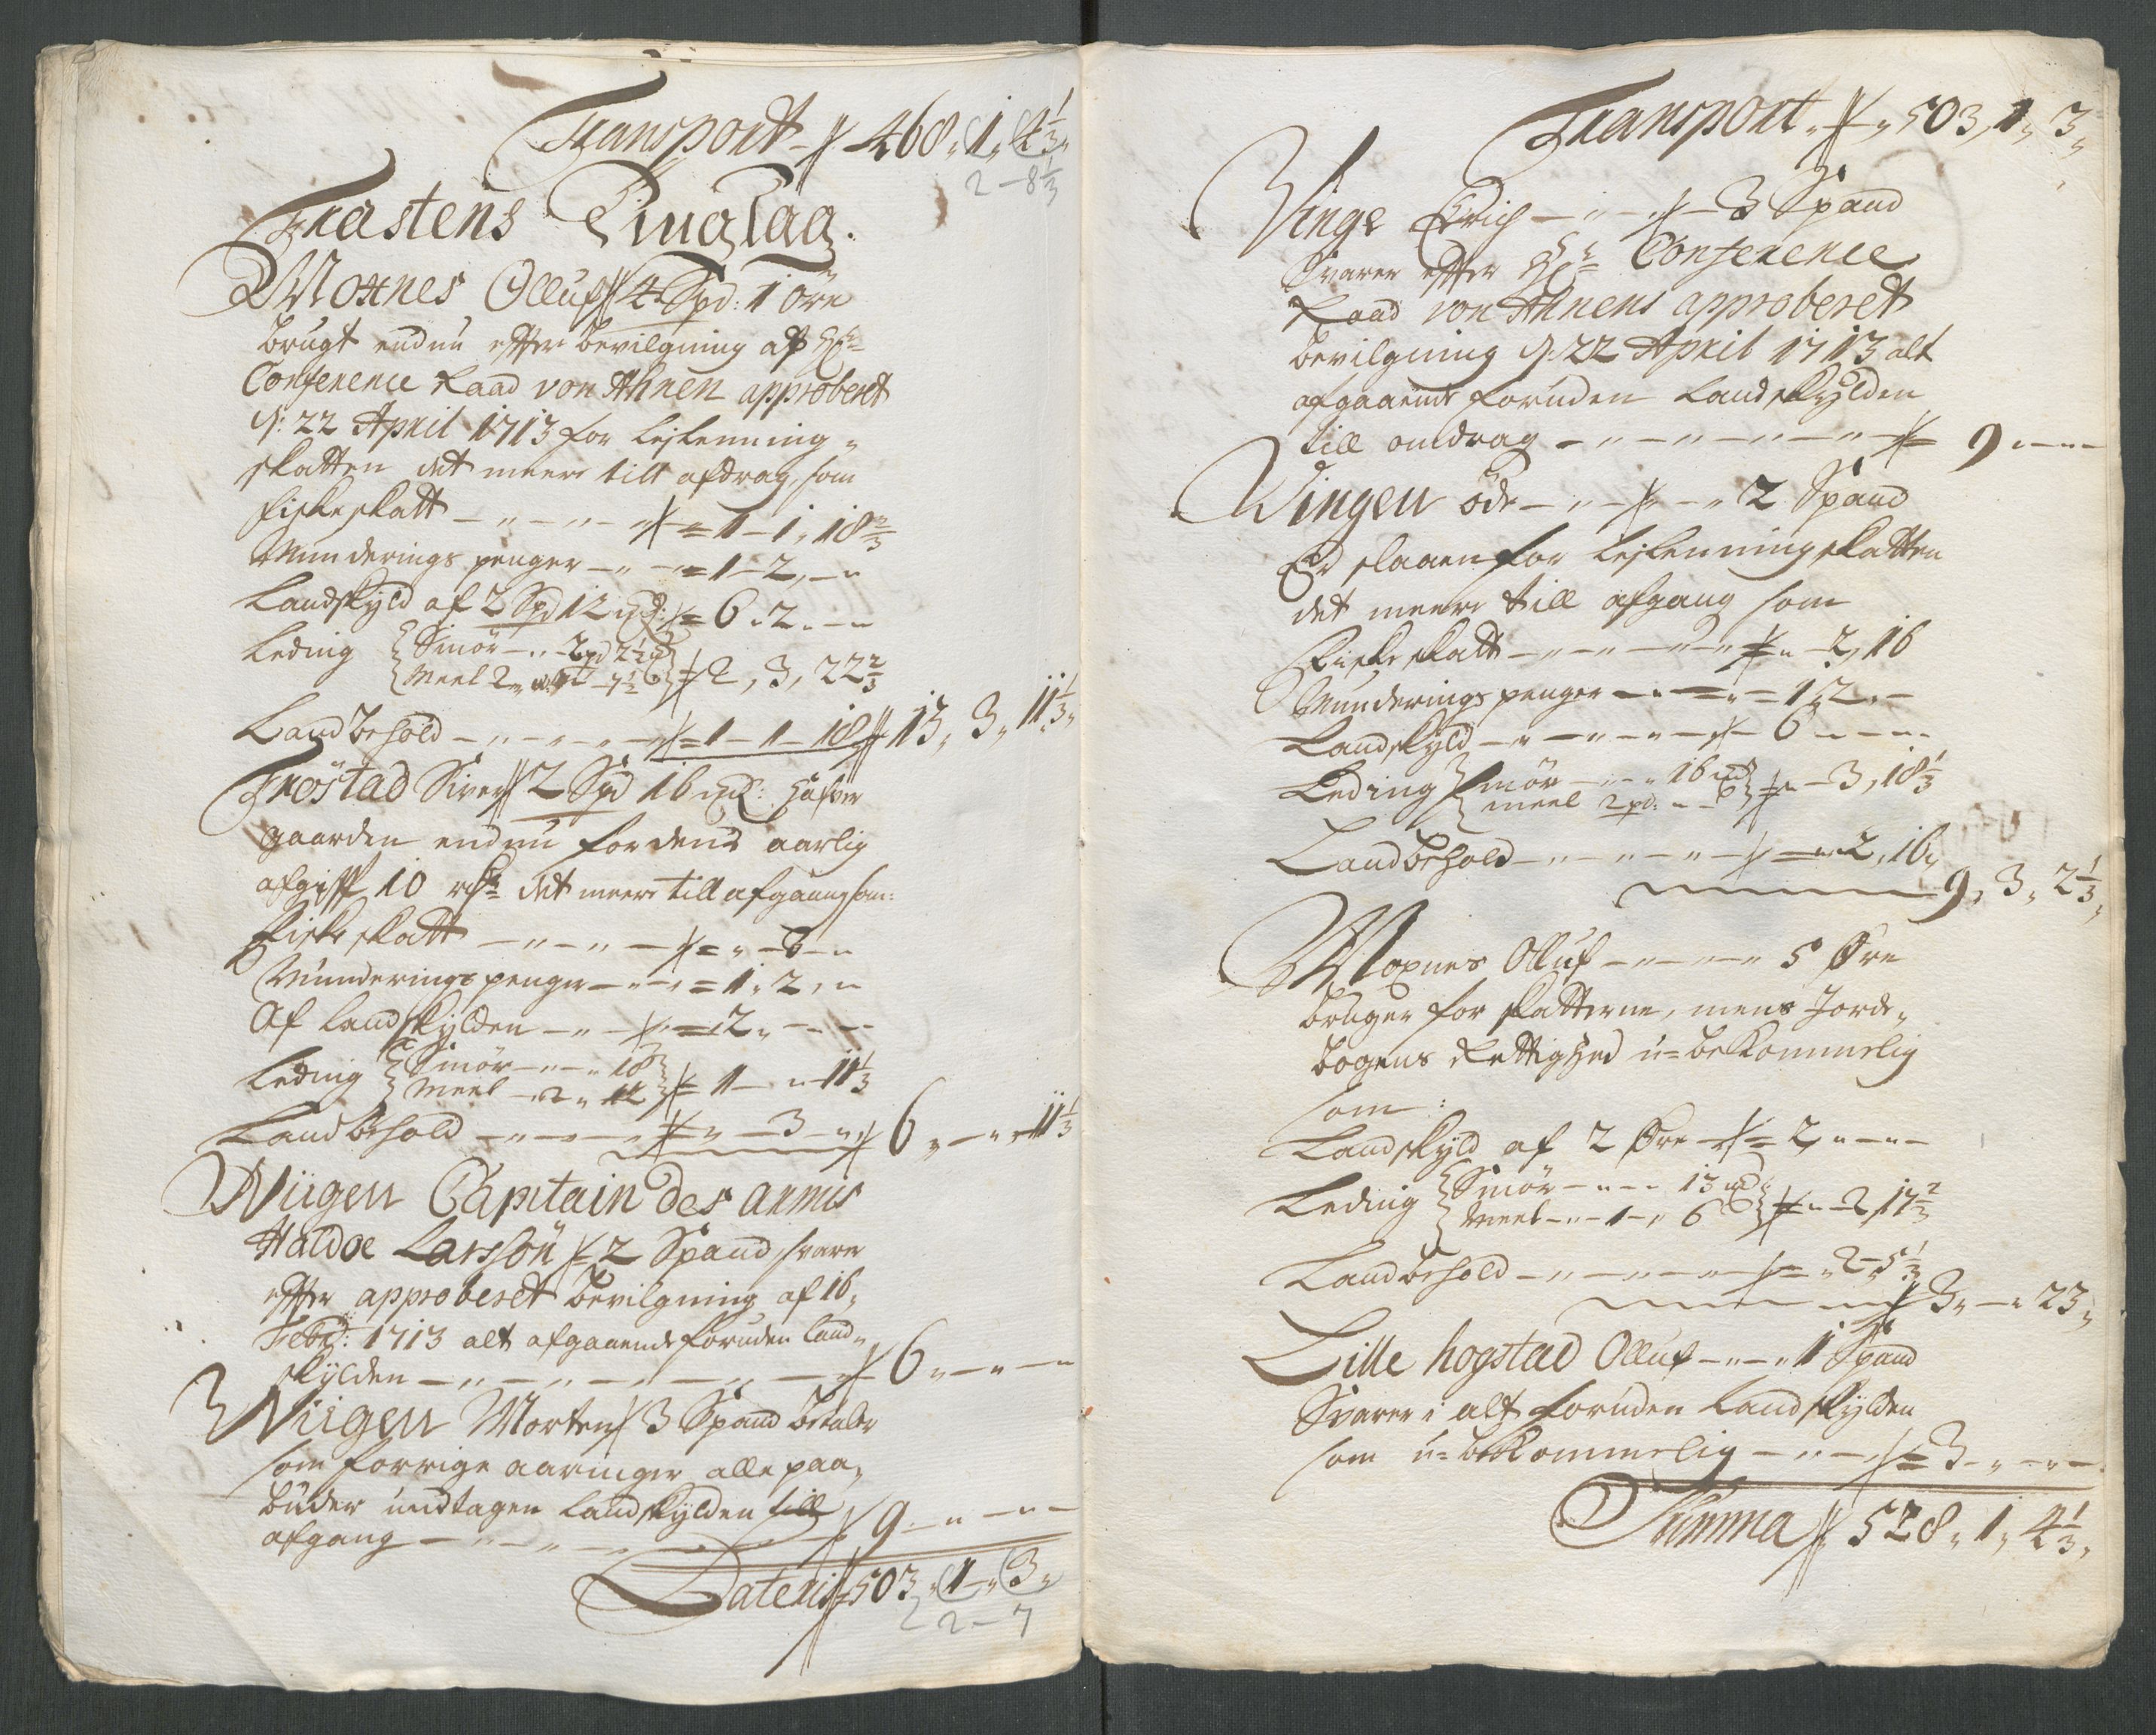 Transport 468„ 1„ 4 1/3„
2 – 8 1/3
Frastens Tinglag.
Moxnes Olluf 4 Spd: 1 öre
brugt endnu effter bevilgning af Hr:
Conference Raad von Ahnen approberet
d: 22 April 1713 for leilenning„
skatten det meere till afdrag, som
Fiske skatt – „ – „ – 1 – 1„ 18 2/3
Munderings penger – „ – 1 – 2„ – „
Landskyld af 2 Spd 12 mk: 6„ 2„ – „
Leding Smör – „ – 2 pd 2 1/2 mk
Meel 2 7 1/2 2, 3, 22 2/3
Landbohold – „ – „ – 1 – 1 – 18 13„ 3„ 11 1/3„
Fröstad Siver 2 Spd 16 mk: hafver
gaarden endnu for dend aarlig
afgifft 10 rdr det meere till afgaang som:
Fiske skatt – „ – „ – „ – 3 – „
Munderings penger – „ – 1„ 2„ „
Af Landskylden – „ – 2„ – „ –
Leding Smör – „ – „ 18
Meel – 2„ 12 1 – „ 11 1/3
Landbohold – „ – „ – 3 – „ 6„ – „ 11 1/3
Wiigen Capitain des armis
Haldoe Larssön 2 Spand svarer
effter approberet bevilgning af 16„
Febr: 1713 alt afgaaende foruden land„
skylden – „ – „ – „ – 6„ – „ –
Wiigen Morten 3 Spand betaler
som forrige aaringer alle paa„
buder undtagen landskylden till
afgang – „ – „ – 9 – „ – „ –
Lateris 503„ 1 – „ 3„
2 – 7
Transport„ 503„ 1„ 3„
Vinge Erich – „ – 3 Spand
Svarer effter Hr: Conference
Raad von Ahnens approberet
bevilgning d: 22 April 1713 alt
afgaaende foruden landskylden
till omdrag – „ – „ – „ – „ – 9 „ – „ –
Wingen öde – „ – „ – „ 2 Spand
Er slaaen for leilenningskatten
det meere till afgang som
Fiske skatt – „ – „ – „ – 2, 16
Munderings penger – „ – „ – 1, 2„ –
Landskyld – „ – „ – „ – 6 – „ – „
Leding smör – „ – „ 16 mk
meel 2 pd: „ – 3, 18 1/3
Landbohold – „ – „ – „ – 2, 16„
9, 3„ 2 1/3„
Moxnes Olluf – „ – „ – „ 5 Øre
bruger for skatterne, mens Jorde„
bogens Rettighed u=bekommelig
som:
Landskyld af 2 Øre – 2„ – „ –
Leding Smör – „ – „ 13 mk
Meel – „ – 1 – „ 6 „ – 2, 17 2/3
Landbohold – „ – „ – „ – „ 2 – 5 1/3
3„ – „ 23„
Lille hogstad Olluf – „ – „ 1 Spand
Svarer i alt foruden landskylden
som u=bekommelig – „ – 3 – „ – „ –
Summa 528„ 1„ 4 1/3„